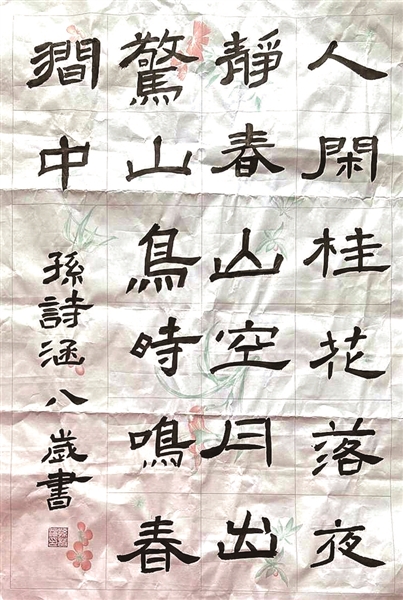 人閑桂花落夜
靜春山空月出
驚山鳥時鳴春
澗中
孫詩涵八歲書